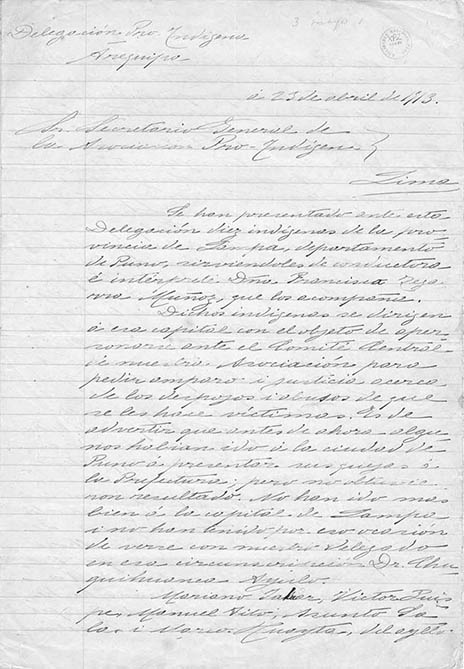 Delegación Pro-Indígena
Arequipa
á 23 de abril de 1913.
Sr. Secretario General de
la Asociacion Pro-Indígena
Lima
Se han presentado ante esta
Delegación diez indígenas de la pro-
vincia de Lampa, departamento
de Puno, sirviéndoles de conductora
é intérprete Dña. Francisca
Muñoz, que los acompaña.
Dichos indígenas se dirigen
á esa capital con el objeto de aper-
sonarse ante el Comité Central
de nuestra Asociación para
pedir amparo i justicia acerca
de los despojos i abusos de que
se les hace víctimas. Es de
advertir que antes de ahora algu-
nos habian ido á la ciudad de
Puno a presentar sus quejas á
la Prefectura; pero no obtuvie-
ron resultado. No han ido mas
bien á la capital de Lampa
i no han tenido por eso ocasión
de verse con nuestro delegado
en esa circunscripción Dr. Chu-
quihuanca Ayulo.
Mariano Victor Quis-
pe, Manuel Asunto
i Mario del ayllo